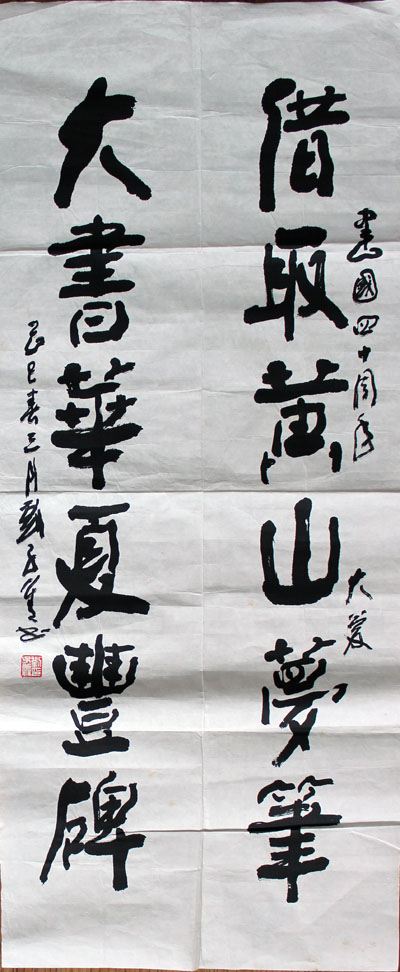 建國四十周年 大慶
借取黄山夢筆
大書華夏豐碑
己巳春三月